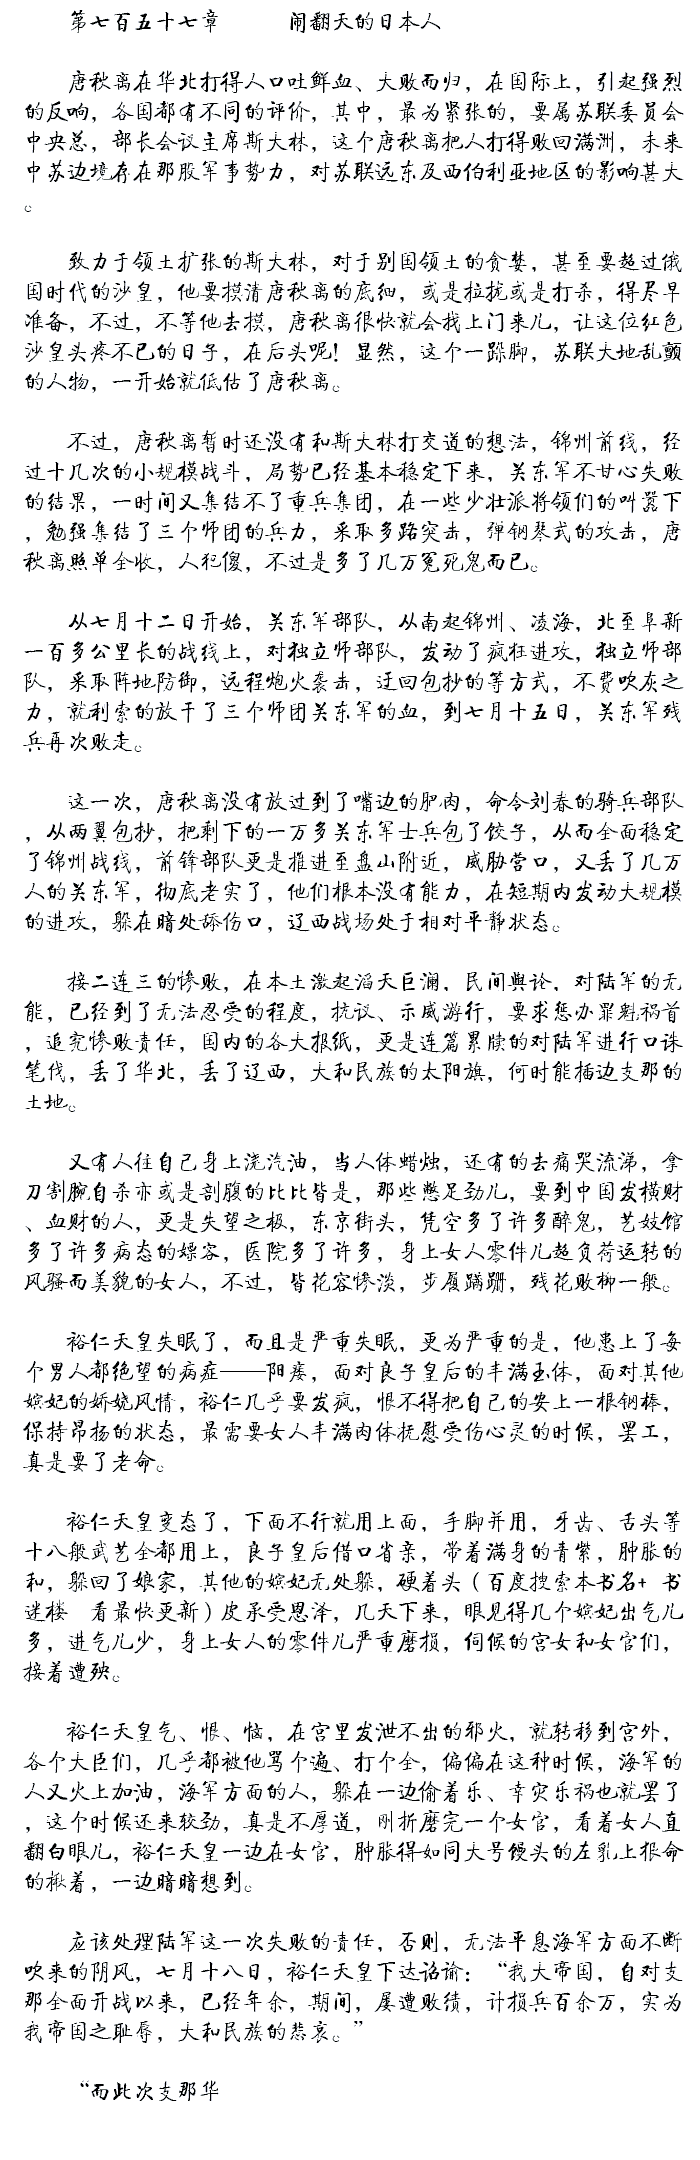 第七百五十七章 闹翻天的日本人
唐秋离在华北打得人口吐鲜血、大败而归，在国际上，引起强烈
的反响，各国都有不同的评价，其中，最为紧张的，要属苏联委员会
中央总，部长会议主席斯大林，这个唐秋离把人打得败回满洲，未来
中苏边境存在那股军事势力，对苏联远东及西伯利亚地区的影响甚大
。
致力于领土扩张的斯大林，对于别国领土的贪婪，甚至要超过俄
国时代的沙皇，他要摸清唐秋离的底细，或是拉拢或是打杀，得尽早
准备，不过，不等他去摸，唐秋离很快就会找上门来儿，让这位红色
沙皇头疼不已的日子，在后头呢！显然，这个一跺脚，苏联大地乱颤
的人物，一开始就低估了唐秋离。
不过，唐秋离暂时还没有和斯大林打交道的想法，锦州前线，经
过十几次的小规模战斗，局势已经基本稳定下来，关东军不甘心失败
的结果，一时间又集结不了重兵集团，在一些少壮派将领们的叫嚣下
，勉强集结了三个师团的兵力，采取多路突击，弹钢琴式的攻击，唐
秋离照单全收，人犯傻，不过是多了几万冤死鬼而已。
从七月十二日开始，关东军部队，从南起锦州、凌海，北至阜新
一百多公里长的战线上，对独立师部队，发动了疯狂进攻，独立师部
队，采取阵地防御，远程炮火袭击，迂回包抄的等方式，不费吹灰之
力，就利索的放干了三个师团关东军的血，到七月十五日，关东军残
兵再次败走。
这一次，唐秋离没有放过到了嘴边的肥肉，命令刘春的骑兵部队
，从两翼包抄，把剩下的一万多关东军士兵包了饺子，从而全面稳定
了锦州战线，前锋部队更是推进至盘山附近，威胁营口，又丢了几万
人的关东军，彻底老实了，他们根本没有能力，在短期内发动大规模
的进攻，躲在暗处舔伤口，辽西战场处于相对平静状态。
接二连三的惨败，在本土激起滔天巨澜，民间舆论，对陆军的无
能，已经到了无法忍受的程度，抗议、示威游行，要求惩办罪魁祸首
，追究惨败责任，国内的各大报纸，更是连篇累牍的对陆军进行口诛
笔伐，丢了华北，丢了辽西，大和民族的太阳旗，何时能插边支那的
土地。
又有人往自己身上浇汽油，当人体蜡烛，还有的去痛哭流涕，拿
刀割腕自杀亦或是剖腹的比比皆是，那些憋足劲儿，要到中国发横财
、血财的人，更是失望之极，东京街头，凭空多了许多醉鬼，艺妓馆
多了许多病态的嫖客，医院多了许多，身上女人零件儿超负荷运转的
风骚而美貌的女人，不过，皆花容惨淡，步履蹒跚，残花败柳一般。
裕仁天皇失眠了，而且是严重失眠，更为严重的是，他患上了每
个男人都绝望的病症——阳痿，面对良子皇后的丰满玉体，面对其他
嫔妃的娇娆风情，裕仁几乎要发疯，恨不得把自己的安上一根钢棒，
保持昂扬的状态，最需要女人丰满肉体抚慰受伤心灵的时候，罢工，
真是要了老命。
裕仁天皇变态了，下面不行就用上面，手脚并用，牙齿、舌头等
十八般武艺全都用上，良子皇后借口省亲，带着满身的青紫，肿胀的
和，躲回了娘家，其他的嫔妃无处躲，硬着头（百度搜索本书名+ 书
迷楼 看最快更新）皮承受恩泽，几天下来，眼见得几个嫔妃出气儿
多，进气儿少，身上女人的零件儿严重磨损，伺候的宫女和女官们，
接着遭殃。
裕仁天皇气、恨、恼，在宫里发泄不出的邪火，就转移到宫外，
各个大臣们，几乎都被他骂个遍、打个全，偏偏在这种时候，海军的
人又火上加油，海军方面的人，躲在一边偷着乐、幸灾乐祸也就罢了
，这个时候还来较劲，真是不厚道，刚折磨完一个女官，看着女人直
翻白眼儿，裕仁天皇一边在女官，肿胀得如同大号馒头的左乳上狠命
的揪着，一边暗暗想到。
应该处理陆军这一次失败的责任，否则，无法平息海军方面不断
吹来的阴风，七月十八日，裕仁天皇下达诏谕：“我大帝国，自对支
那全面开战以来，已经年余，期间，屡遭败绩，计损兵百余万，实为
我帝国之耻辱，大和民族的悲哀。”
“而此次支那华